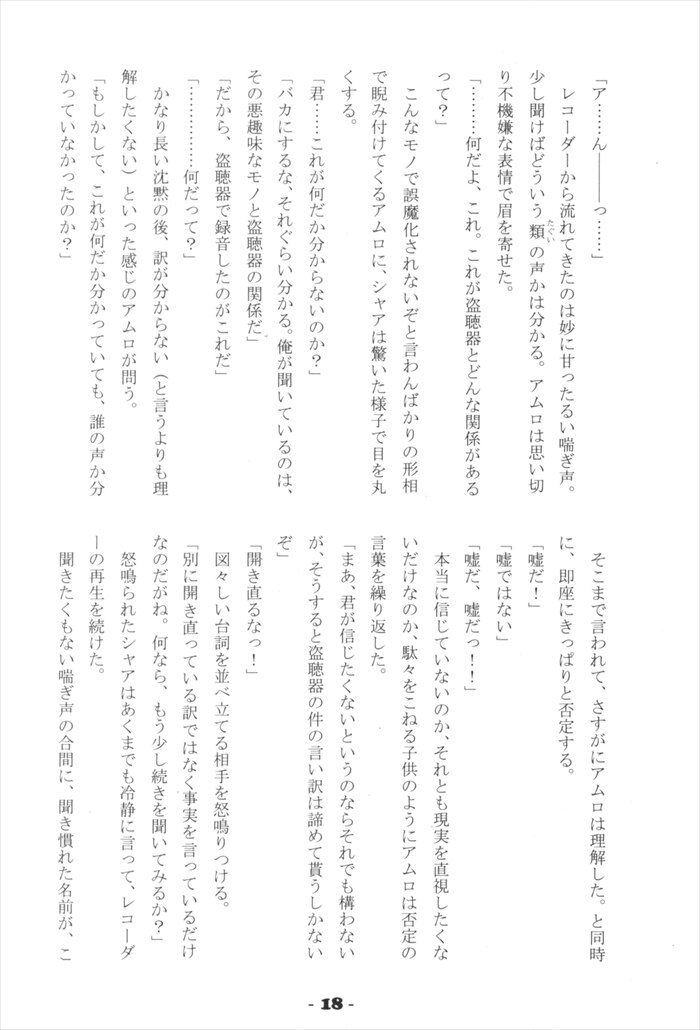 「ア……ん――っ……」
　レコーダーから流れてきたのは妙に甘ったるい喘ぎ声。
少し聞けばどういう類の声かは分かる。アムロは思い切
たぐい
り不機嫌な表情で眉を寄せた。
「………何だよ、これ。これが盗聴器とどんな関係がある
って？」
　こんなモノで誤魔化されないぞと言わんばかりの形相
で睨み付けてくるアムロに、シャアは驚いた様子で目を丸
くする。
「君……これが何だか分からないのか？」
「バカにするな、それぐらい分かる。俺が聞いているのは、
その悪趣味なモノと盗聴器の関係だ」
「だから、盗聴器で録音したのがこれだ」
「…………… 何だって？」
　かなり長い沈黙の後、訳が分からない（と言うよりも理
解したくない）といった感じのアムロが問う。
「もしかして、これが何だか分かっていても、誰の声か分
かっていなかったのか？」
　そこまで言われて、さすがにアムロは理解した。と同時
に、即座にきっぱりと否定する。
「嘘だ！」
「嘘ではない」
「嘘だ、嘘だっ！！」
　本当に信じていないのか、それとも現実を直視したくな
いだけなのか、駄々をこねる子供のようにアムロは否定の
言葉を繰り返した。
「まあ、君が信じたくないというのならそれでも構わない
が、そうすると盗聴器の件の言い訳は諦めて貰うしかない
ぞ」
「開き直るなっ！」
　図々しい台詞を並べ立てる相手を怒鳴りつける。
「別に開き直っている訳ではなく事実を言っているだけ
なのだがね。何なら、もう少し続きを聞いてみるか？」
　怒鳴られたシャアはあくまでも冷静に言って、レコーダ
ーの再生を続けた。
　聞きたくもない喘ぎ声の合間に、聞き慣れた名前が、こ
- 18 -